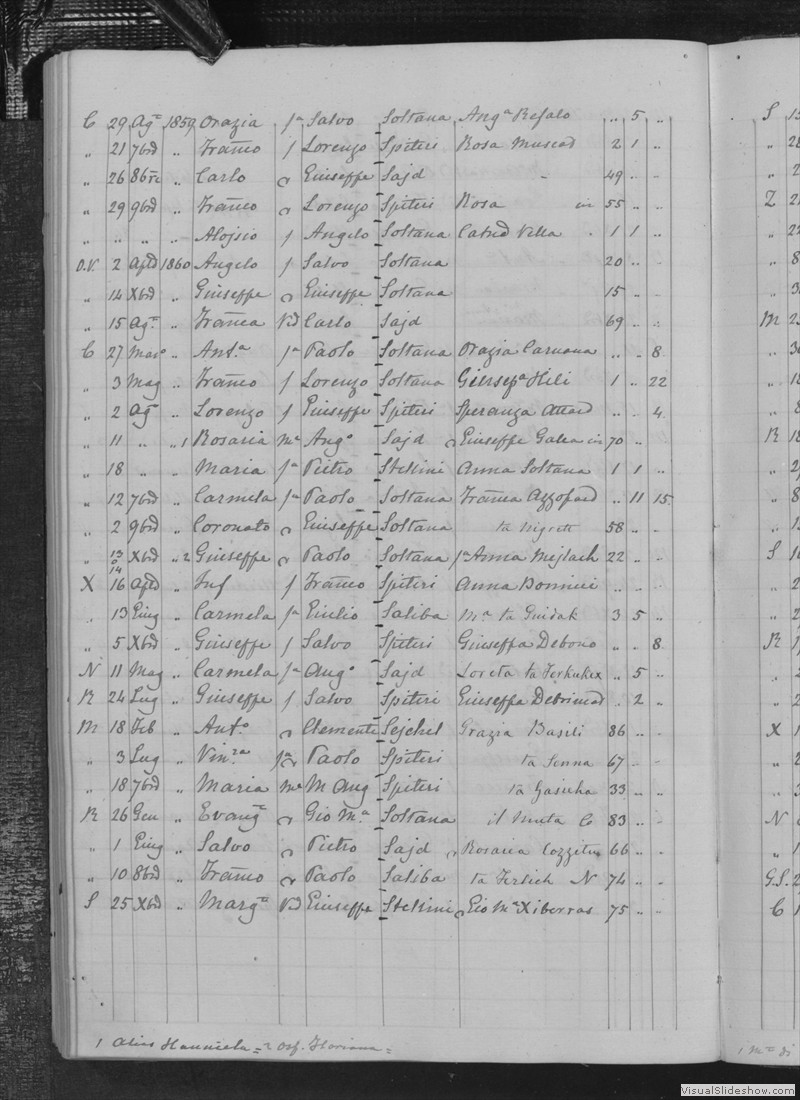 C 29 Agº 1859 Orazia fª Salvo Soltana Angª Refalo .. 5 ..
" 21 7bre .. Franco f Lorenzo Spiteri Rosa Muscad 2 1 ..
" 26 8bre .. Carlo Giuseppe Sajd - 49 .. -
" 29 9bre .. Franco Lorenzo Spiteri Rosa in 55 .. ..
" " " .. Alojsio f Angelo Soltana Catnd Vella . 1 1 ..
O.V. 2 Aple 1860 Angelo f Salvo Soltana 20 .. -
" 14 Xbre .. Giuseppe Giuseppe Soltana 15 .. -
" 15 Agº .. Franca Vd Carlo Sajd 69 .. ..
C 27 Marº .. Antª fª Paolo Soltana Orazia Caruana .. .. 8
" 3 Mag .. Franco f Lorenzo Soltana Giusepª Hili 1 .. 22
" 2 Ag .. Lorenzo f Giuseppe Spiteri Speranza Attard .. .. 4
" 11 " .. 1 Rosaria mª Angº Sajd Giuseppe Galea in 70 .. ..
" 18 " .. Maria fª Pietro Stellini Anna Soltana 1 1 ..
" 12 7bre .. Carmela fª Paolo Soltana Franca Azzopard .. 11 15
" 2 9bre .. Coronato Giuseppe Soltana ta 58 .. -
" 13 o 14 Xbre .. 2 Giuseppe Paolo Soltana fª Anna Mejlach 22 .. -
X 16 Aple .. Inf f Franco Spiteri Anna Bonnici .. .. -
" 13 Giug .. Carmela fª Giulio Saliba Mª ta 3 5 ..
" 5 Xbre .. Giuseppe f Salvo Spiteri Giuseppa Debono .. .. 8
N 11 Mag .. Carmela fª Augº Sajd Loreta ta .. 5 ..
R 24 Lug .. Giuseppe f Salvo Spiteri Giuseppa Debrincad . 2 ..
M 18 Feb .. Antº Clemente Sejchel Grazia Basili 86 .. -
" 3 Lug .. Vinzª fª Paolo Spiteri ta Senna 67 .. -
" 18 7bre .. Maria mª M Ang Spiteri ta 33 .. ..
R 26 Gen .. Evang Gio Mª Soltana il Muta C 83 .. -
" 1 Giug .. Salvo Pietro Sajd Rosaria 66 .. -
" 10 8bre .. Franco Paolo Saliba ta N 74 .. -
S 25 Xbre .. Margª Vd Giuseppe Stellini Gio Mª Xiberras 75 .. -
1 Alias = 2 Osp. Floriana =
S
Z
M
R
S
R
X
N
G.S.
C
VisualSlideshow.com